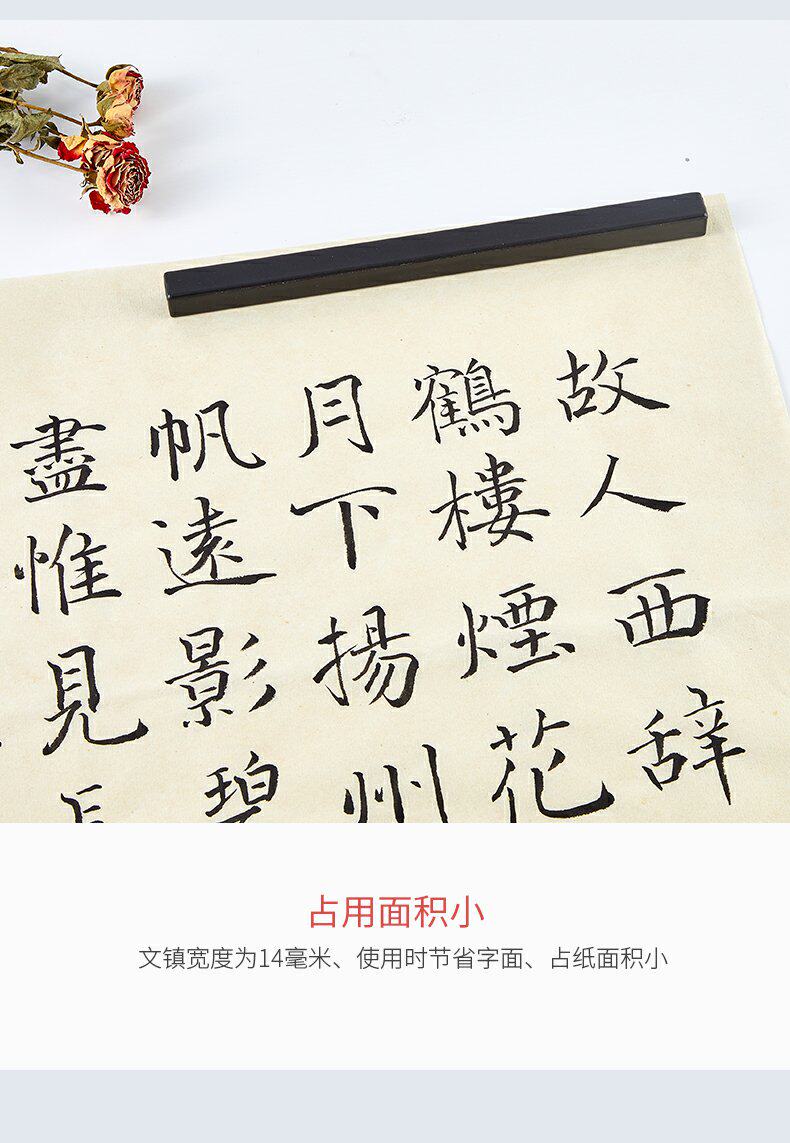 故人西辞
鶴樓煙花
月下揚州
帆遠影碧
盡惟見
占用面积小
文镇宽度为14毫米、使用时节省字面、占纸面积小